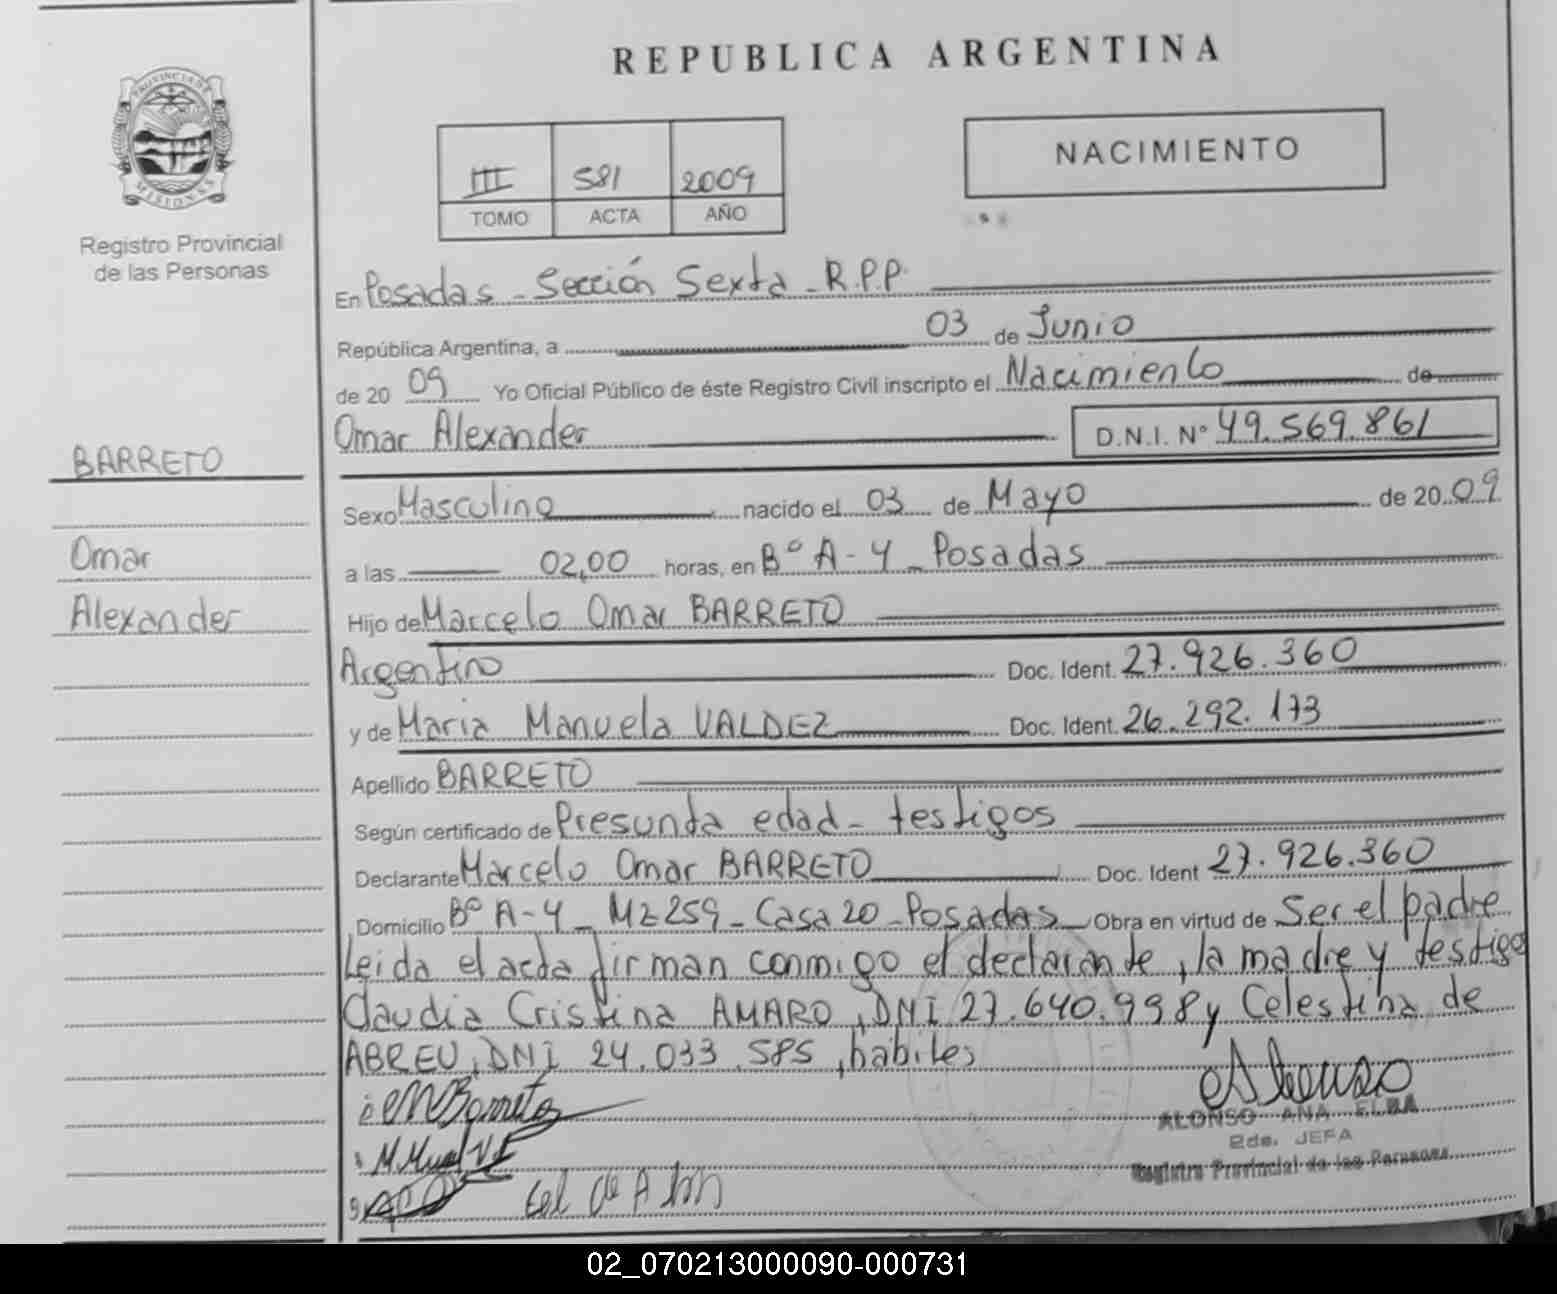 REPUBLICA ARGENTINA
PROVINCIA DE
MISIONES
Registro Provincial
de las Personas
III 581 2009
TOMO ACTA AÑO
NACIMIENTO
En Posadas - Sección Sexta - R.P.P.
República Argentina, a 03 de Junio
de 20 09 Yo Oficial Público de éste Registro Civil inscripto el Nacimiento de
Omar Alexander D.N.I. Nº 49.569.861
BARRETO
Omar
Alexander
Sexo Masculino nacido el 03 de Mayo de 20 09
a las 02,00 horas, en Bº A-4 - Posadas
Hijo de Marcelo Omar BARRETO
Argentino Doc. Ident. 27.926.360
y de Maria Manuela VALDEZ Doc. Ident. 26.292.173
Apellido BARRETO
Según certificado de Presunta edad - testigos
Declarante Marcelo Omar BARRETO Doc. Ident 27.926.360
Domicilio Bº A-4 - Mz 259 - Casa 20 - Posadas Obra en virtud de Ser el padre
Leida el acta firman conmigo el declarante, la madre y testigo
Claudia Cristina AMARO, DNI 27.640.998 y Celestina de
ABREU, DNI 24.033.585, habiles
ALONSO ANA ELBA
2da. JEFA
Registro Provincial de las Personas
02_070213000090-000731